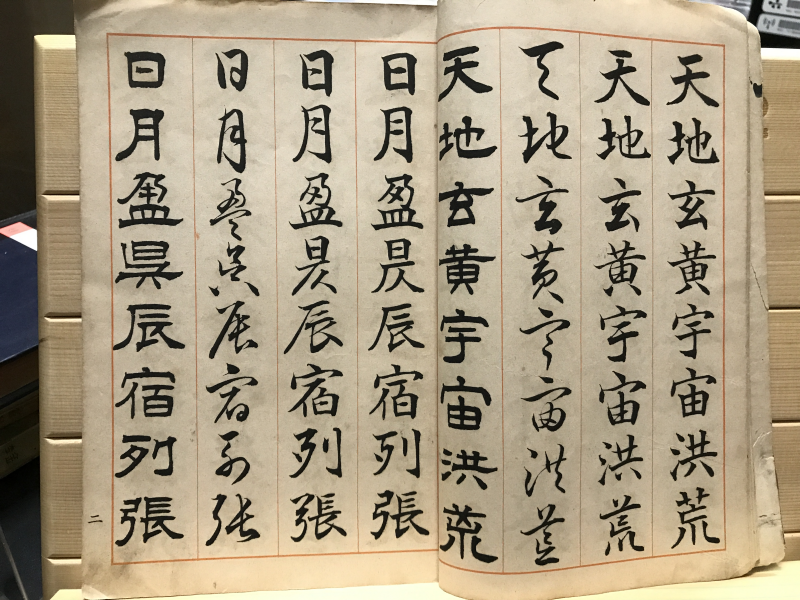 天地玄黄宇宙洪荒
天地玄黄宇宙洪荒
天地玄黄宇宙洪荒
天地玄黄宇宙洪荒
日月盈昃辰宿列張
日月盈昃辰宿列張
日月盈昃辰宿列張
日月盈昃辰宿列張
二